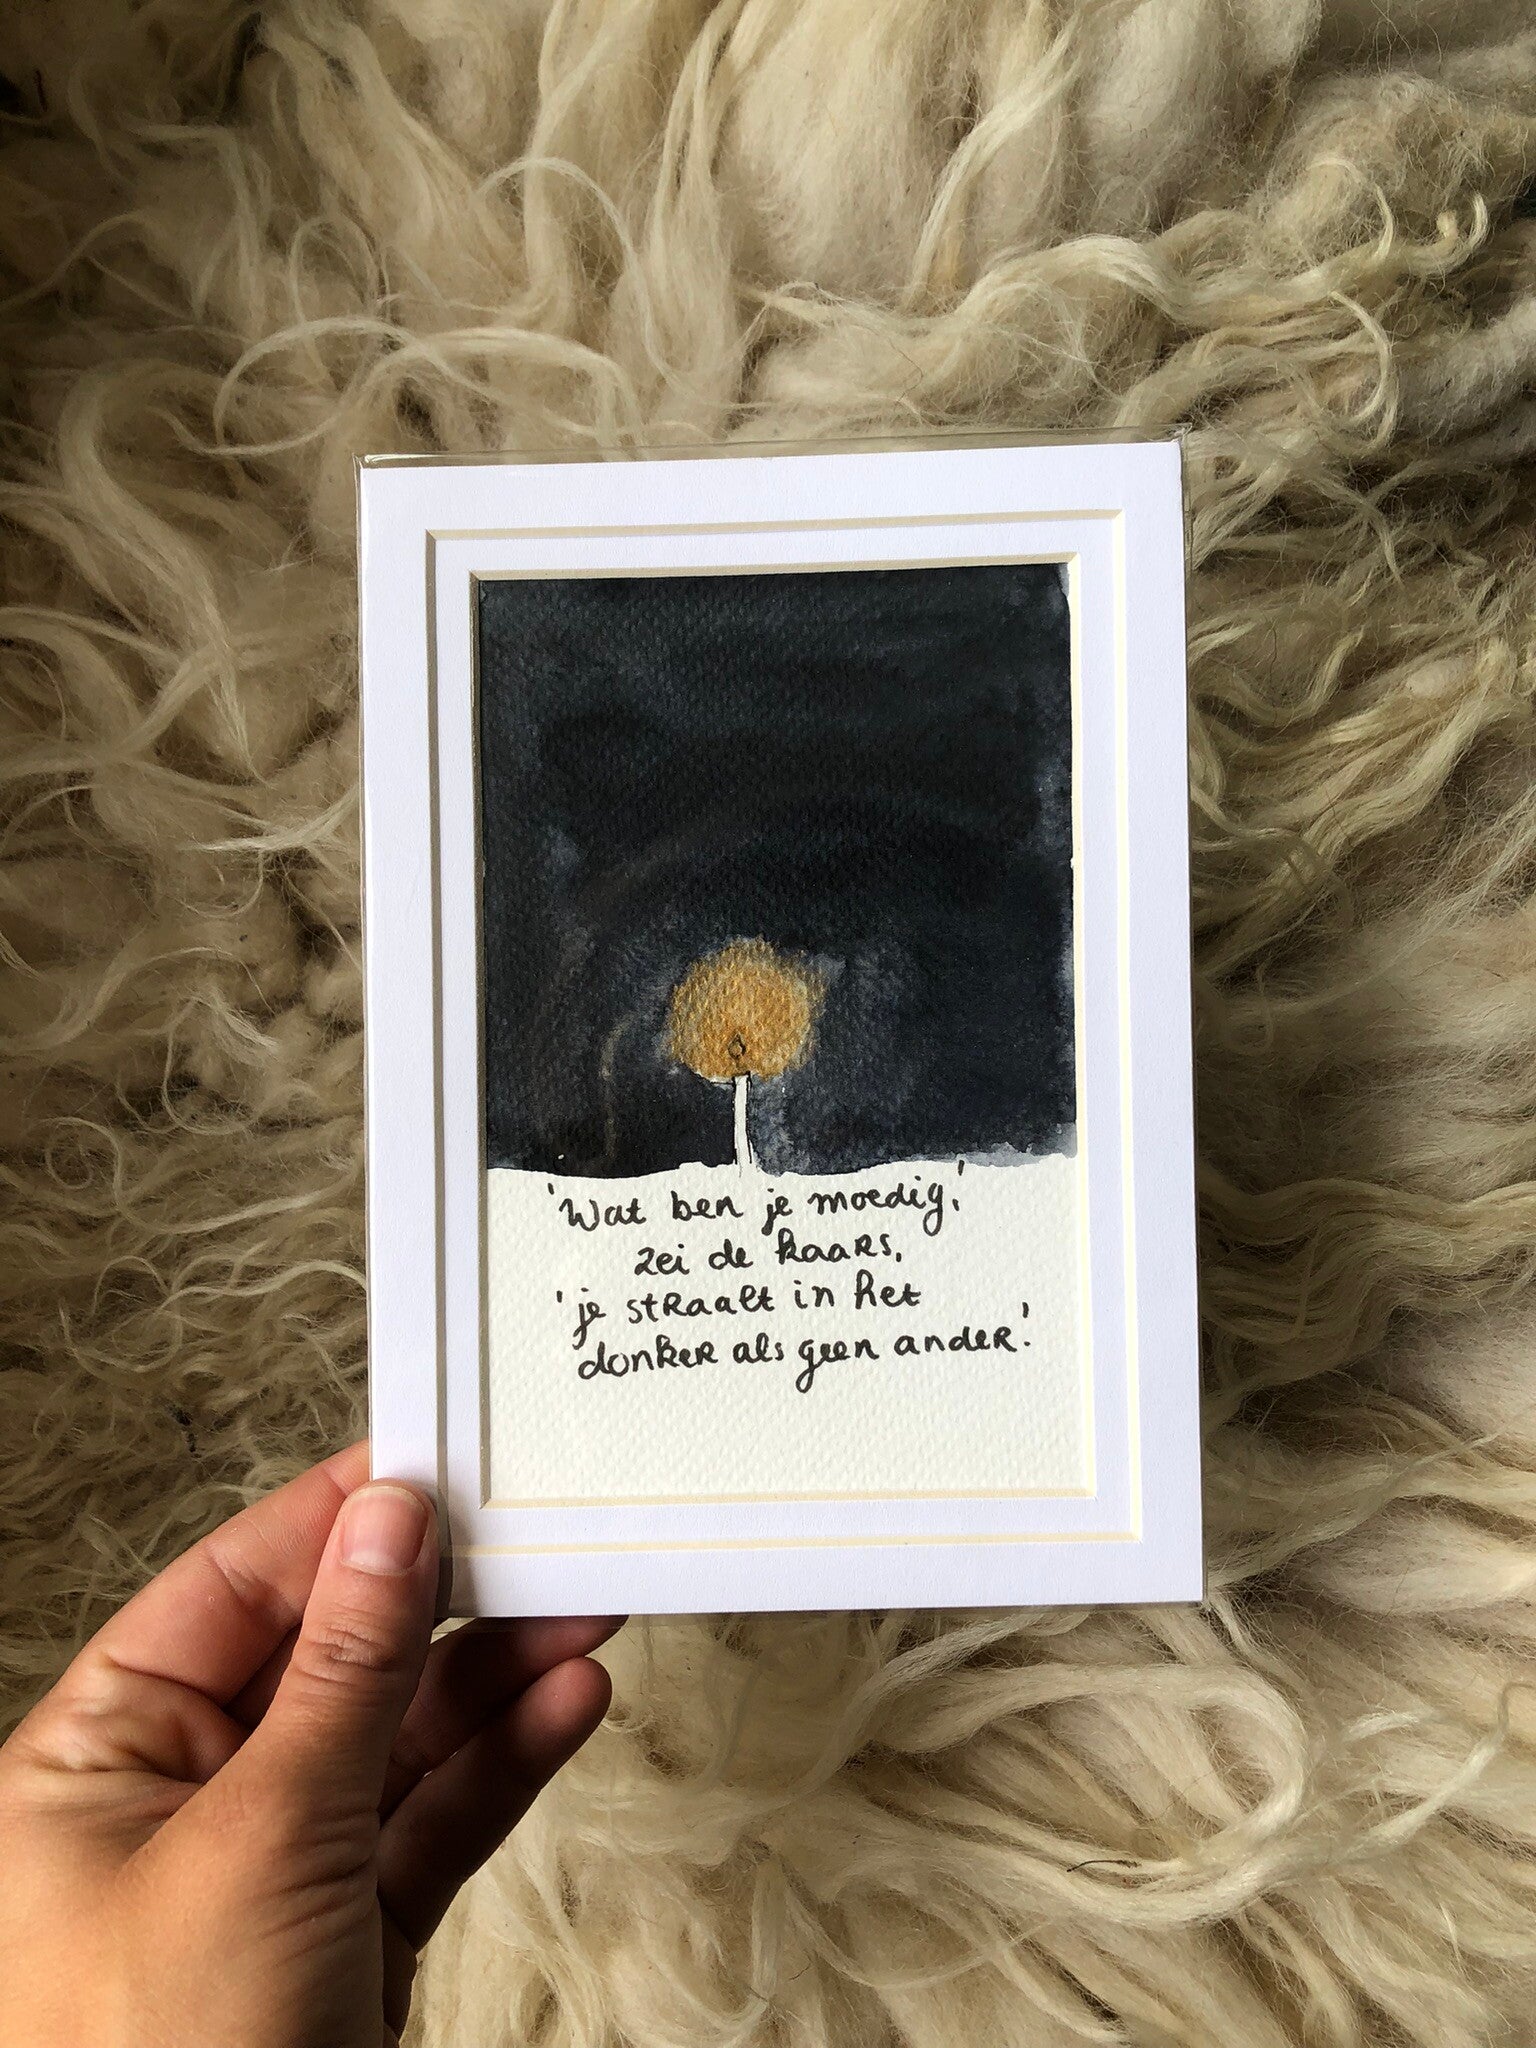 'Wat ben je moedig,'
zei de kaars,
'je straalt in het
donker als geen ander.'